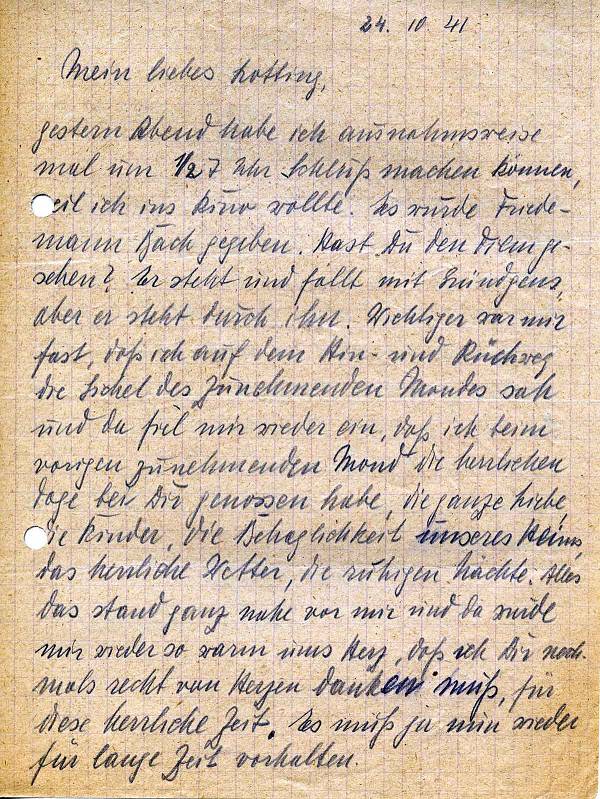 24. 10 41
Mein liebes Mutting,
gestern Abend habe ich ausnahmsweise
mal um 1/2 7 Uhr Schluß machen können,
weil ich ins Kino wollte. Es wurde Friede-
mann Bach gegeben. Hast Du den Film ge-
sehen? Er steht und fällt mit Gründgens,
aber er steht durch ihn. Wichtiger war mir
fast, daß ich auf dem Hin- und Rückweg
die Sichel des zunehmenden Mondes sah
und da fiel mir wieder ein, daß ich beim
vorigen zunehmenden Mond die herrlichen
Tage bei Dir genossen habe, die ganze Liebe,
die Kinder, die Behaglichkeit unseres Heims,
das herrliche Wetter, die ruhigen Nächte. Alles
das stand ganz nahe vor mir und da wurde
mir wieder so warm ums Herz, daß ich Dir noch-
mals recht von Herzen danken muß, für
diese herrliche Zeit. Es muß ja nun wieder
für lange Zeit vorhalten.